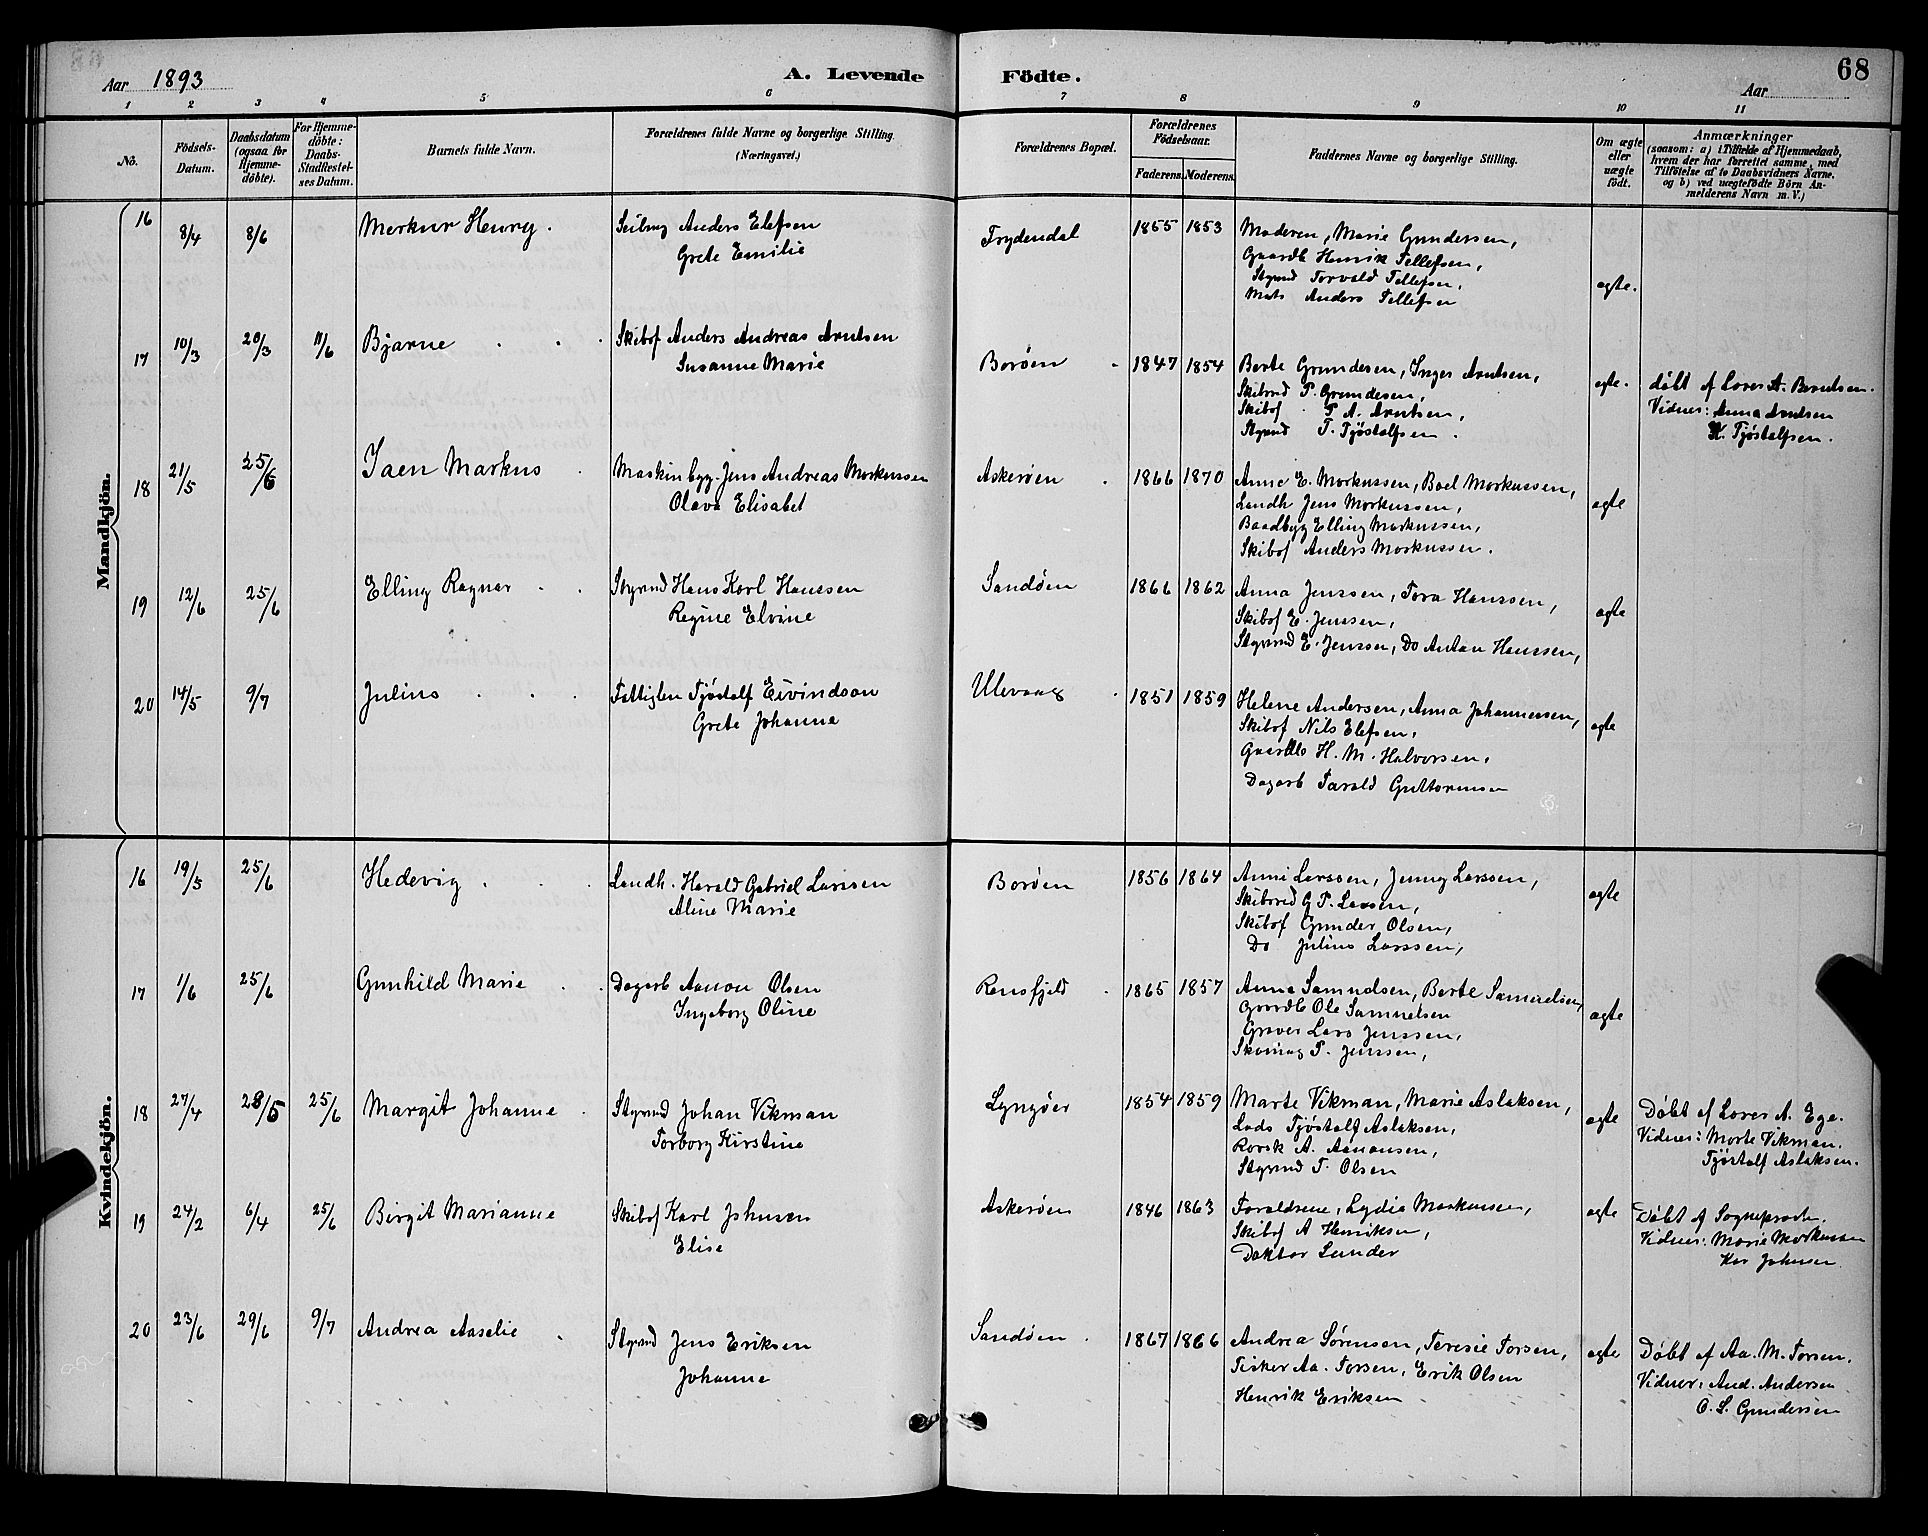 Aar 1893
A. Levende
Födte.
68
Aar
1 2 3 4 5 6 7 8 9 10 11
No.
Födsels-
Datum.
Daabsdatum
(ogsaa for
Hjemme-
döbte).
For Hjemme-
döbte:
Daabs-
Stadfæstel-
ses Datum.
Barnets fulde Navn.
Forældrenes fulde Navne og borgerlige Stilling.
(Næringsvei.)
Forældrenes Bopæl.
Forældrenes
Födselsaar.
Faderens. Moderens.
Faddernes Navne og borgerlige Stilling.
Om ægte
eller
uægte
födt.
Anmærkninger
(saasom: a) i Tilfælde af Hjemmedaab,
hvem der har forrettet samme, med
Tilföielse af to Daabsvidners Navne,
og b) ved uægtefödte Börn An-
melderens Navn m. V.)
Mandkjön.
16 8/4 8/6 Merkur Henry.
Anders Elefsen
Grete Emilie
Frydendal
1855 1853
Moderen, Marie Gundersen,
Gaardb Henrik Tellefsen,
Styrmd Torvald Tellefsen,
Mats Anders Tellefsen
ægte.
17 10/3 20/3 11/6 Bjarne
Skibof Anders Andreas Arntsen
Susanne Marie
Borøen
1847 1854
Berte Gundersen, Inger Arntsen,
Skibsred P. Gundersen,
Skibof T. A. Arntsen,
Styrmd T. Tjøstolfsen.
ægte.
døbt af Lærer A. Berntsen.
Vidner: Anna Arntsen
K. Tjøstolfsen.
18 21/5 25/6 Jaen Markus
Maskinbyg. Jens Andreas Markussen
Olava Elisabet
Askerøen
1866 1870
Anne E. Markussen, Boel Markussen,
Landh Jens Markussen,
Baadbyg Elling Markussen,
Skibof Anders Markussen.
ægte
19 12/6 25/6 Elling Ragnar
Styrmd Hans Karl Hanssen
Regine Elvine
Sandøen
1866 1862
Anna Jenssen, Tora Hanssen,
Skibof E. Jenssen,
Styrmd E. Jenssen, Do Anton Hanssen,
ægte
20 14/5 9/7 Julius
Fattiglem Tjøstolf Eivindson
Grete Johanna
Ulevaag
1851 1859
Helene Andersen, Anna Johannessen,
Skibof Nils Elefsen,
Gaardb H. M. Halvorsen,
Dagarb Tarald Guttormsen
ægte
Kvindekjön.
16 19/5 25/6 Hedevig
Landh. Harald Gabriel Larssen
Aline Marie
Borøen
1856 1864
Anne Larssen, Jenny Larssen,
Skibsred G P. Larsen,
Skibof Gunder Olsen,
Do Julius Larssen,
ægte
17 1/6 25/6 Gunhild Marie
Dagarb Aanon Olsen
Ingeborg Oline
Rønsfjeld
1865 1857
Anna Samuelsen, Berte Samuelsen,
Gaardb Ole Samuelsen
Graver Lars Jenssen,
Skomag P. Jenssen,
ægte
18 27/4 28/5 25/6 Margit Johanne
Styrmd Johan Vikman
Torborg Kirstine
Lyngøer
1854 1859
Marte Vikman, Marie Aslaksen,
Lods Tjøstolf Aslaksen,
A. Aanonsen,
Styrmd T. Olsen
ægte
Døbt af Lærer A. Ege.
Vidner: Marte Vikman.
Tjøstolf Aslaksen.
19 24/2 6/4 25/6 Birgit Marianne
Skibof Karl Johnsen
Elise
Askerøen
1846 1863
Forældrene, Lydia Markussen,
Skibof A Henriksen,
Doktor Lunder
ægte
Døbt af Sognepræsten.
Vidner: Marie Markussen
Kar Johnsen
20 23/6 29/6 9/7 Andrea Aaselie
Styrmd Jens Eriksen
Johanne
Sandøen
1867 1866
Andrea Sørensen, Teresie Torsen,
Fisker Aa. Torsen, Erik Olsen
Henrik Eriksen
ægte
Døbt af Aa. M. Torsen.
Vidner: And. Andersen
O. S. Gundersen